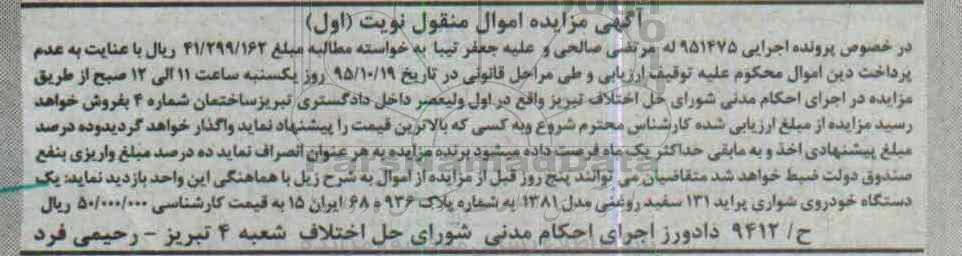 آگهی مزایده اموال منقول نوبت (اول)
در خصوص پرونده اجرایی ۹۵۱۴۷۵ له مرتضی صالحی و علیه جعفر تیبا به خواسته مطالبه مبلغ ۴۱/۲۹۹/۱۶۲ ریال با عنایت به عدم
پرداخت دین اموال محکوم علیه توقیف ارزیابی و طی مراحل قانونی در تاریخ ۹۵/۱۰/۱۹ روز یکسنبه ساعت ۱۱ الی ۱۲ صبح از طریق
مزایده در اجرای احکام مدنی شورای حل اختلاف تبریز واقع در اول ولیعصر داخل دادگستری تبریز ساختمان شماره ۴ بفروش خواهد
رسید مزایده از مبلغ ارزیابی شده کارشناس محترم شروع وبه کسی که بالاترین قیمت را پیشنهاد نماید واگذار خواهد گردیدوده درصد
مبلغ پیشنهادی اخذ و به مابقی حداکثر یک ماه فرصت داده میشود برنده مزایده به هر عنوان انصراف نماید ده درصد مبلغ واریزی بنفع
صندوق دولت ضبط خواهد شد متقاضیان می توانند پنج روز قبل از مزایده از اموال به شرح زیل با هماهنگی این واحد بازدید نماید: یک
دستگاه خودروی شواری پراید ۱۳۱ سفید روغنی مدل ۱۳۸۱ به شماره پلاک ۹۳۶ ه ۶۸ ایران ۱۵ به قیمت کارشناسی ۵۰/۰۰۰/۰۰۰ ریال
ح/ ۹۴۱۲ دادورز اجرای احکام مدنی شورای حل اختلاف شعبه ۴ تبریز - رحیمی فرد